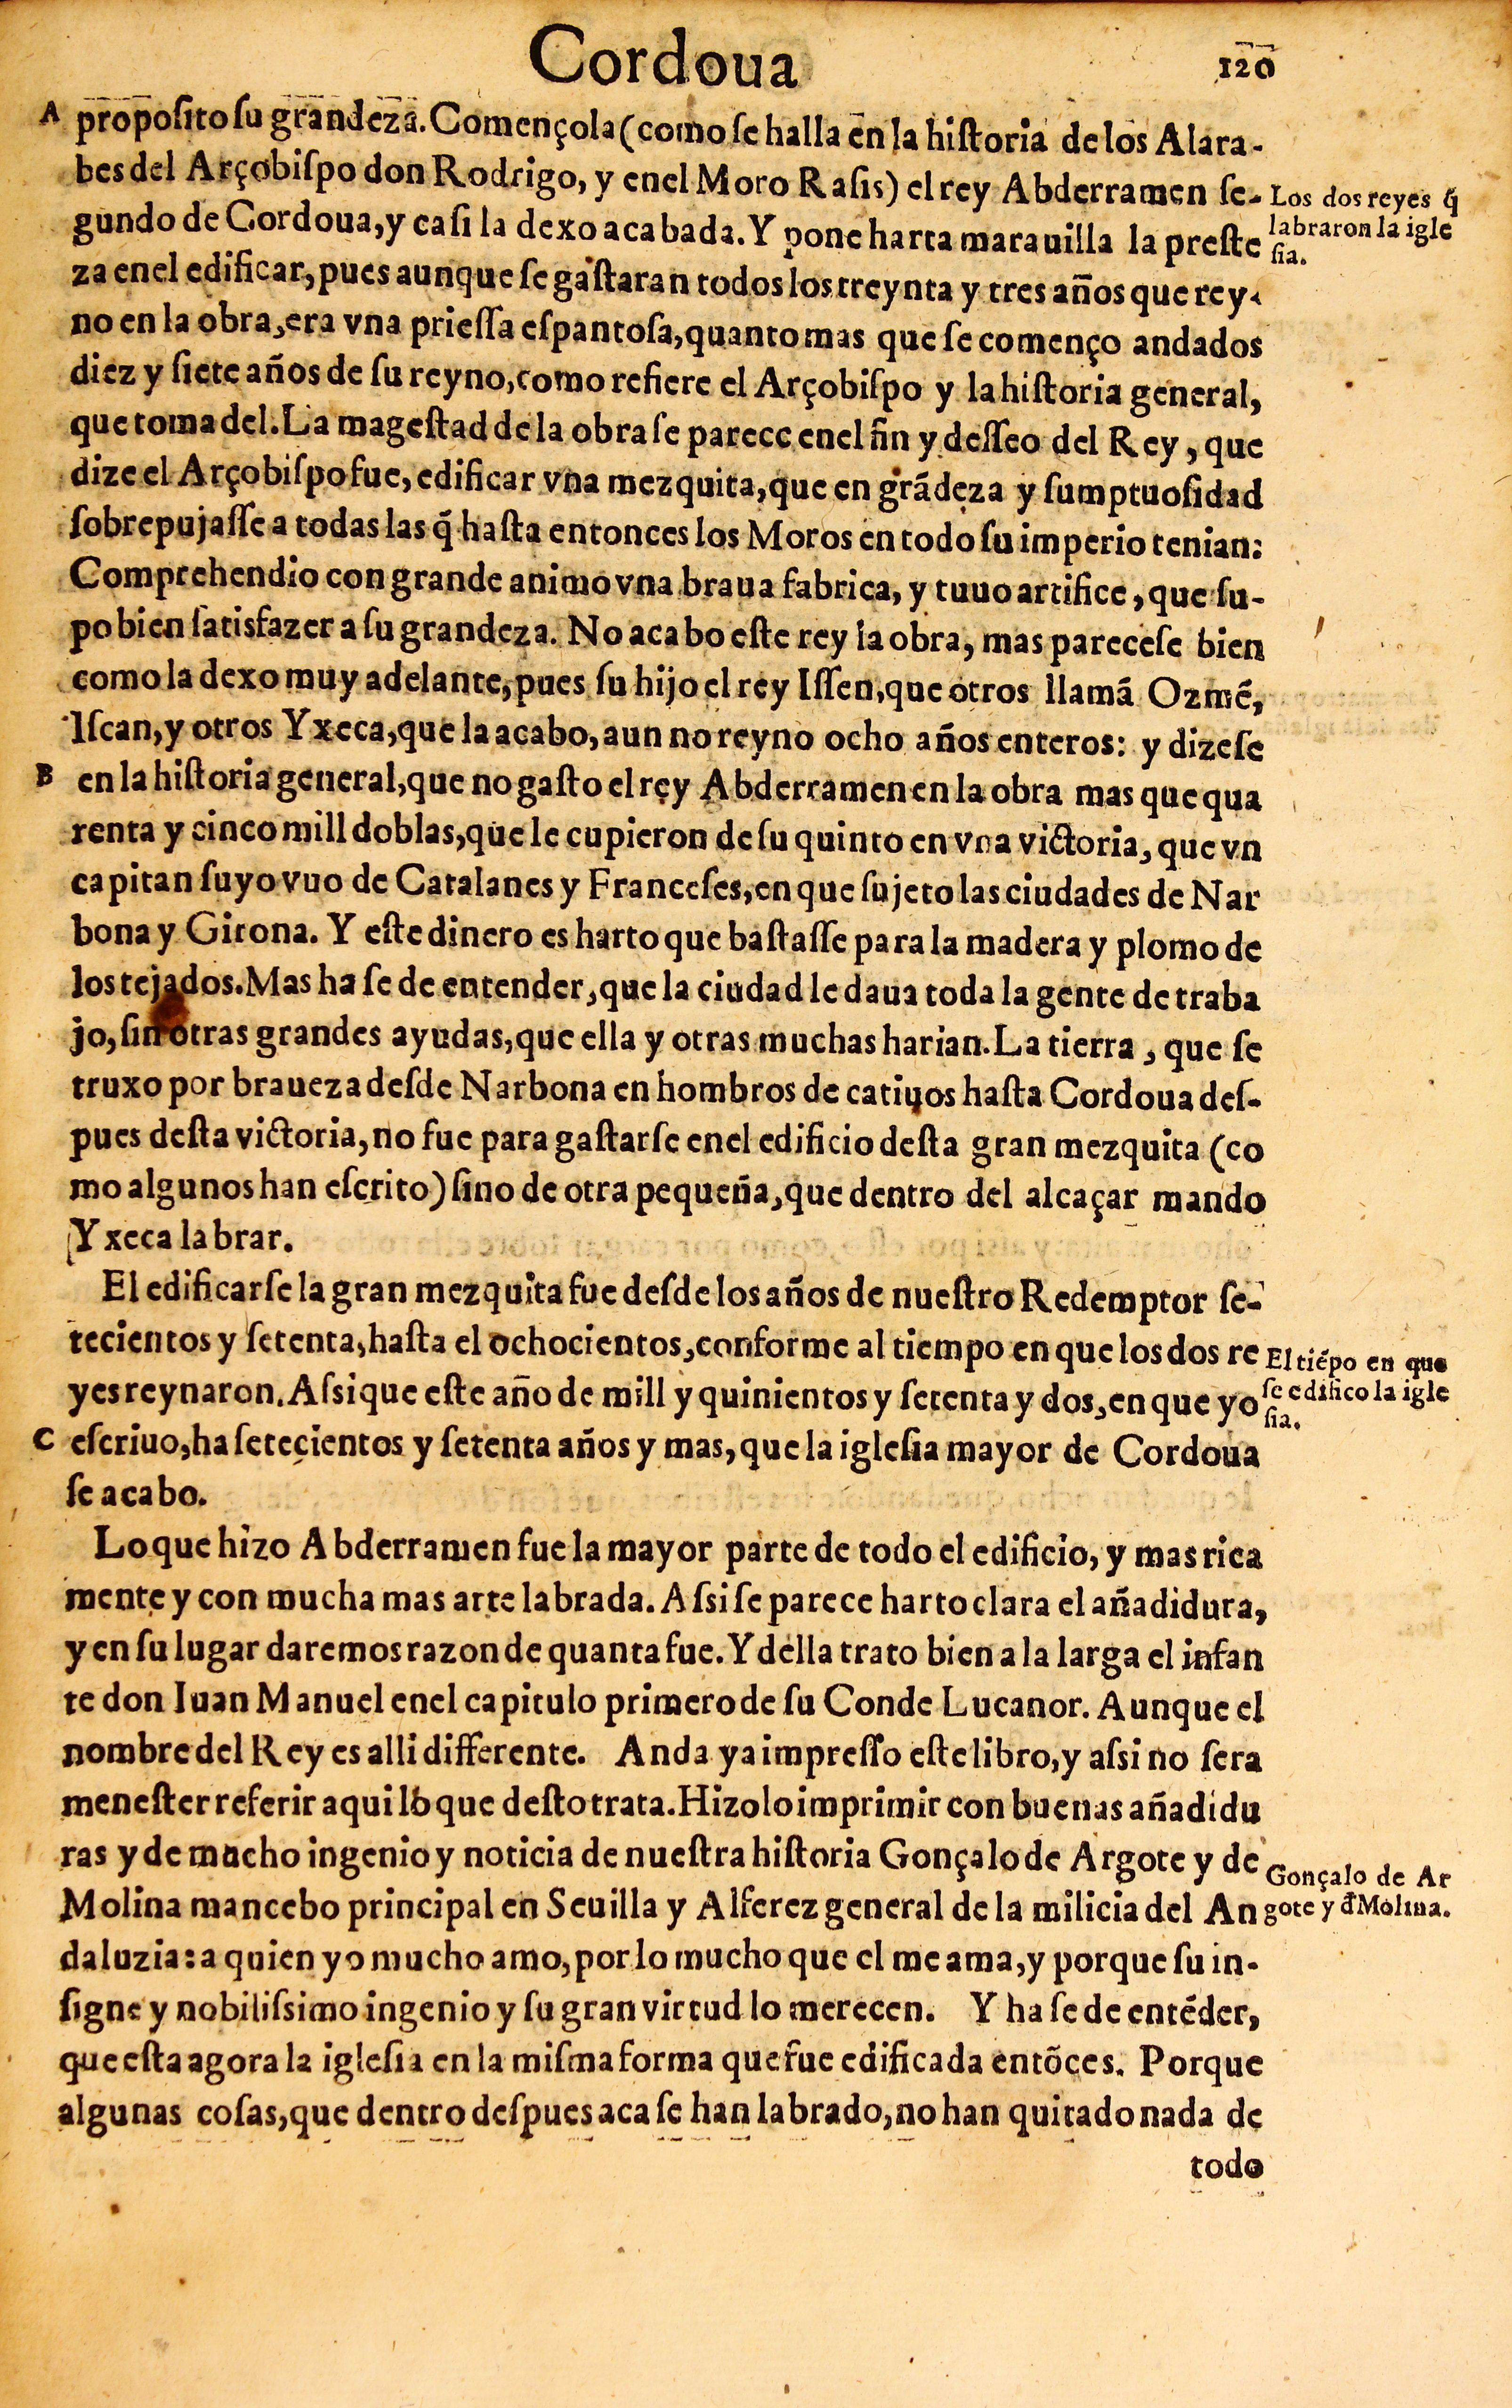 Cordoua
120
A proposito su grandeza. Començola (como se halla en la historia de los Alara-
bes del Arçobispo don Rodrigo, y enel Moro Rasis) el rey Abderramen se-
Los dos reyes q̃
labraron la igle
sia.
gundo de Cordoua, y casi la dexo acabada. Y pone harta marauilla la preste
za enel edificar, pues aunque se gastaran todos los treynta y tres años que rey-
no en la obra, era vna priessa espantosa, quanto mas que se començo andados
diez y siete años de su reyno, como refiere el Arçobispo y la historia general,
que toma del. La magestad de la obra se parece enel fin y desseo del Rey, que
dize el Arçobispo fue, edificar vna mezquita, que en grãdeza y sumptuosidad
sobrepujasse a todas las q̃ hasta entonces los Moros en todo su imperio tenian:
Comprehendio con grande animo vna braua fabrica, y tuuo artifice, que su-
po bien satisfazer a su grandeza. No acabo este rey la obra, mas parecese bien
como la dexo muy adelante, pues su hijo el rey Issen, que otros llamã Ozmẽ,
Iscan, y otros Yxeca, que la acabo, aun no reyno ocho años enteros: y dizese
B en la historia general, que no gasto el rey Abderramen en la obra mas que qua
renta y cinco mill doblas, que le cupieron de su quinto en vna victoria, que vn
capitan suyo vuo de Catalanes y Franceses, en que sujeto las ciudades de Nar
bona y Girona. Y este dinero es harto que bastasse para la madera y plomo de
los tejados. Mas ha se de entender, que la ciudad le daua toda la gente de traba
jo, sin otras grandes ayudas, que ella y otras muchas harian. La tierra, que se
truxo por braueza desde Narbona en hombros de catiuos hasta Cordoua des-
pues desta victoria, no fue para gastarse enel edificio desta gran mezquita (co
mo algunos han escrito) sino de otra pequeña, que dentro del alcaçar mando
Yxeca labrar.
El edificarse la gran mezquita fue desde los años de nuestro Redemptor se-
tecientos y setenta, hasta el ochocientos, conforme al tiempo en que los dos re
El tiẽpo en que
se edifico la igle
sia.
yes reynaron. Assi que este año de mill y quinientos y setenta y dos, en que yo
C escriuo, ha setecientos y setenta años y mas, que la iglesia mayor de Cordoua
se acabo.
Lo que hizo Abderramen fue la mayor parte de todo el edificio, y mas rica
mente y con mucha mas arte labrada. Assi se parece harto clara el añadidura,
y en su lugar daremos razon de quanta fue. Y della trato bien a la larga el infan
te don Iuan Manuel enel capitulo primero de su Conde Lucanor. Aunque el
nombre del Rey es alli differente. Anda ya impresso este libro, y assi no sera
menester referir aqui lo que desto trata. Hizolo imprimir con buenas añadidu
ras y de mucho ingenio y noticia de nuestra historia Gonçalo de Argote y de
Gonçalo de Ar
gote y d̃ Molina.
Molina mancebo principal en Seuilla y Alferez general de la milicia del An
daluzia: a quien yo mucho amo, por lo mucho que el me ama, y porque su in-
signe y nobilissimo ingenio y su gran virtud lo merecen. Y ha se de entẽder,
que esta agora la iglesia en la misma forma que fue edificada entõces. Porque
algunas cosas, que dentro despues aca se han labrado, no han quitado nada de
todo